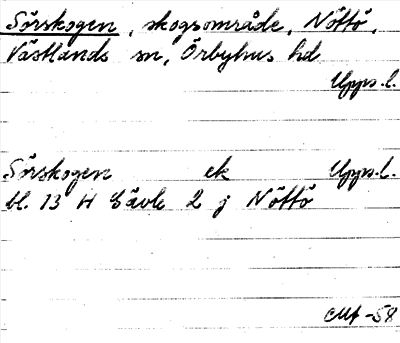 Sörskogen, skogsområde, Nöttö,
Västlands sn, Örbyhus hd
Upps. l.
Sörskogen ek Upps. l.
bl. 13 H Gävle 2 j Nöttö
-58